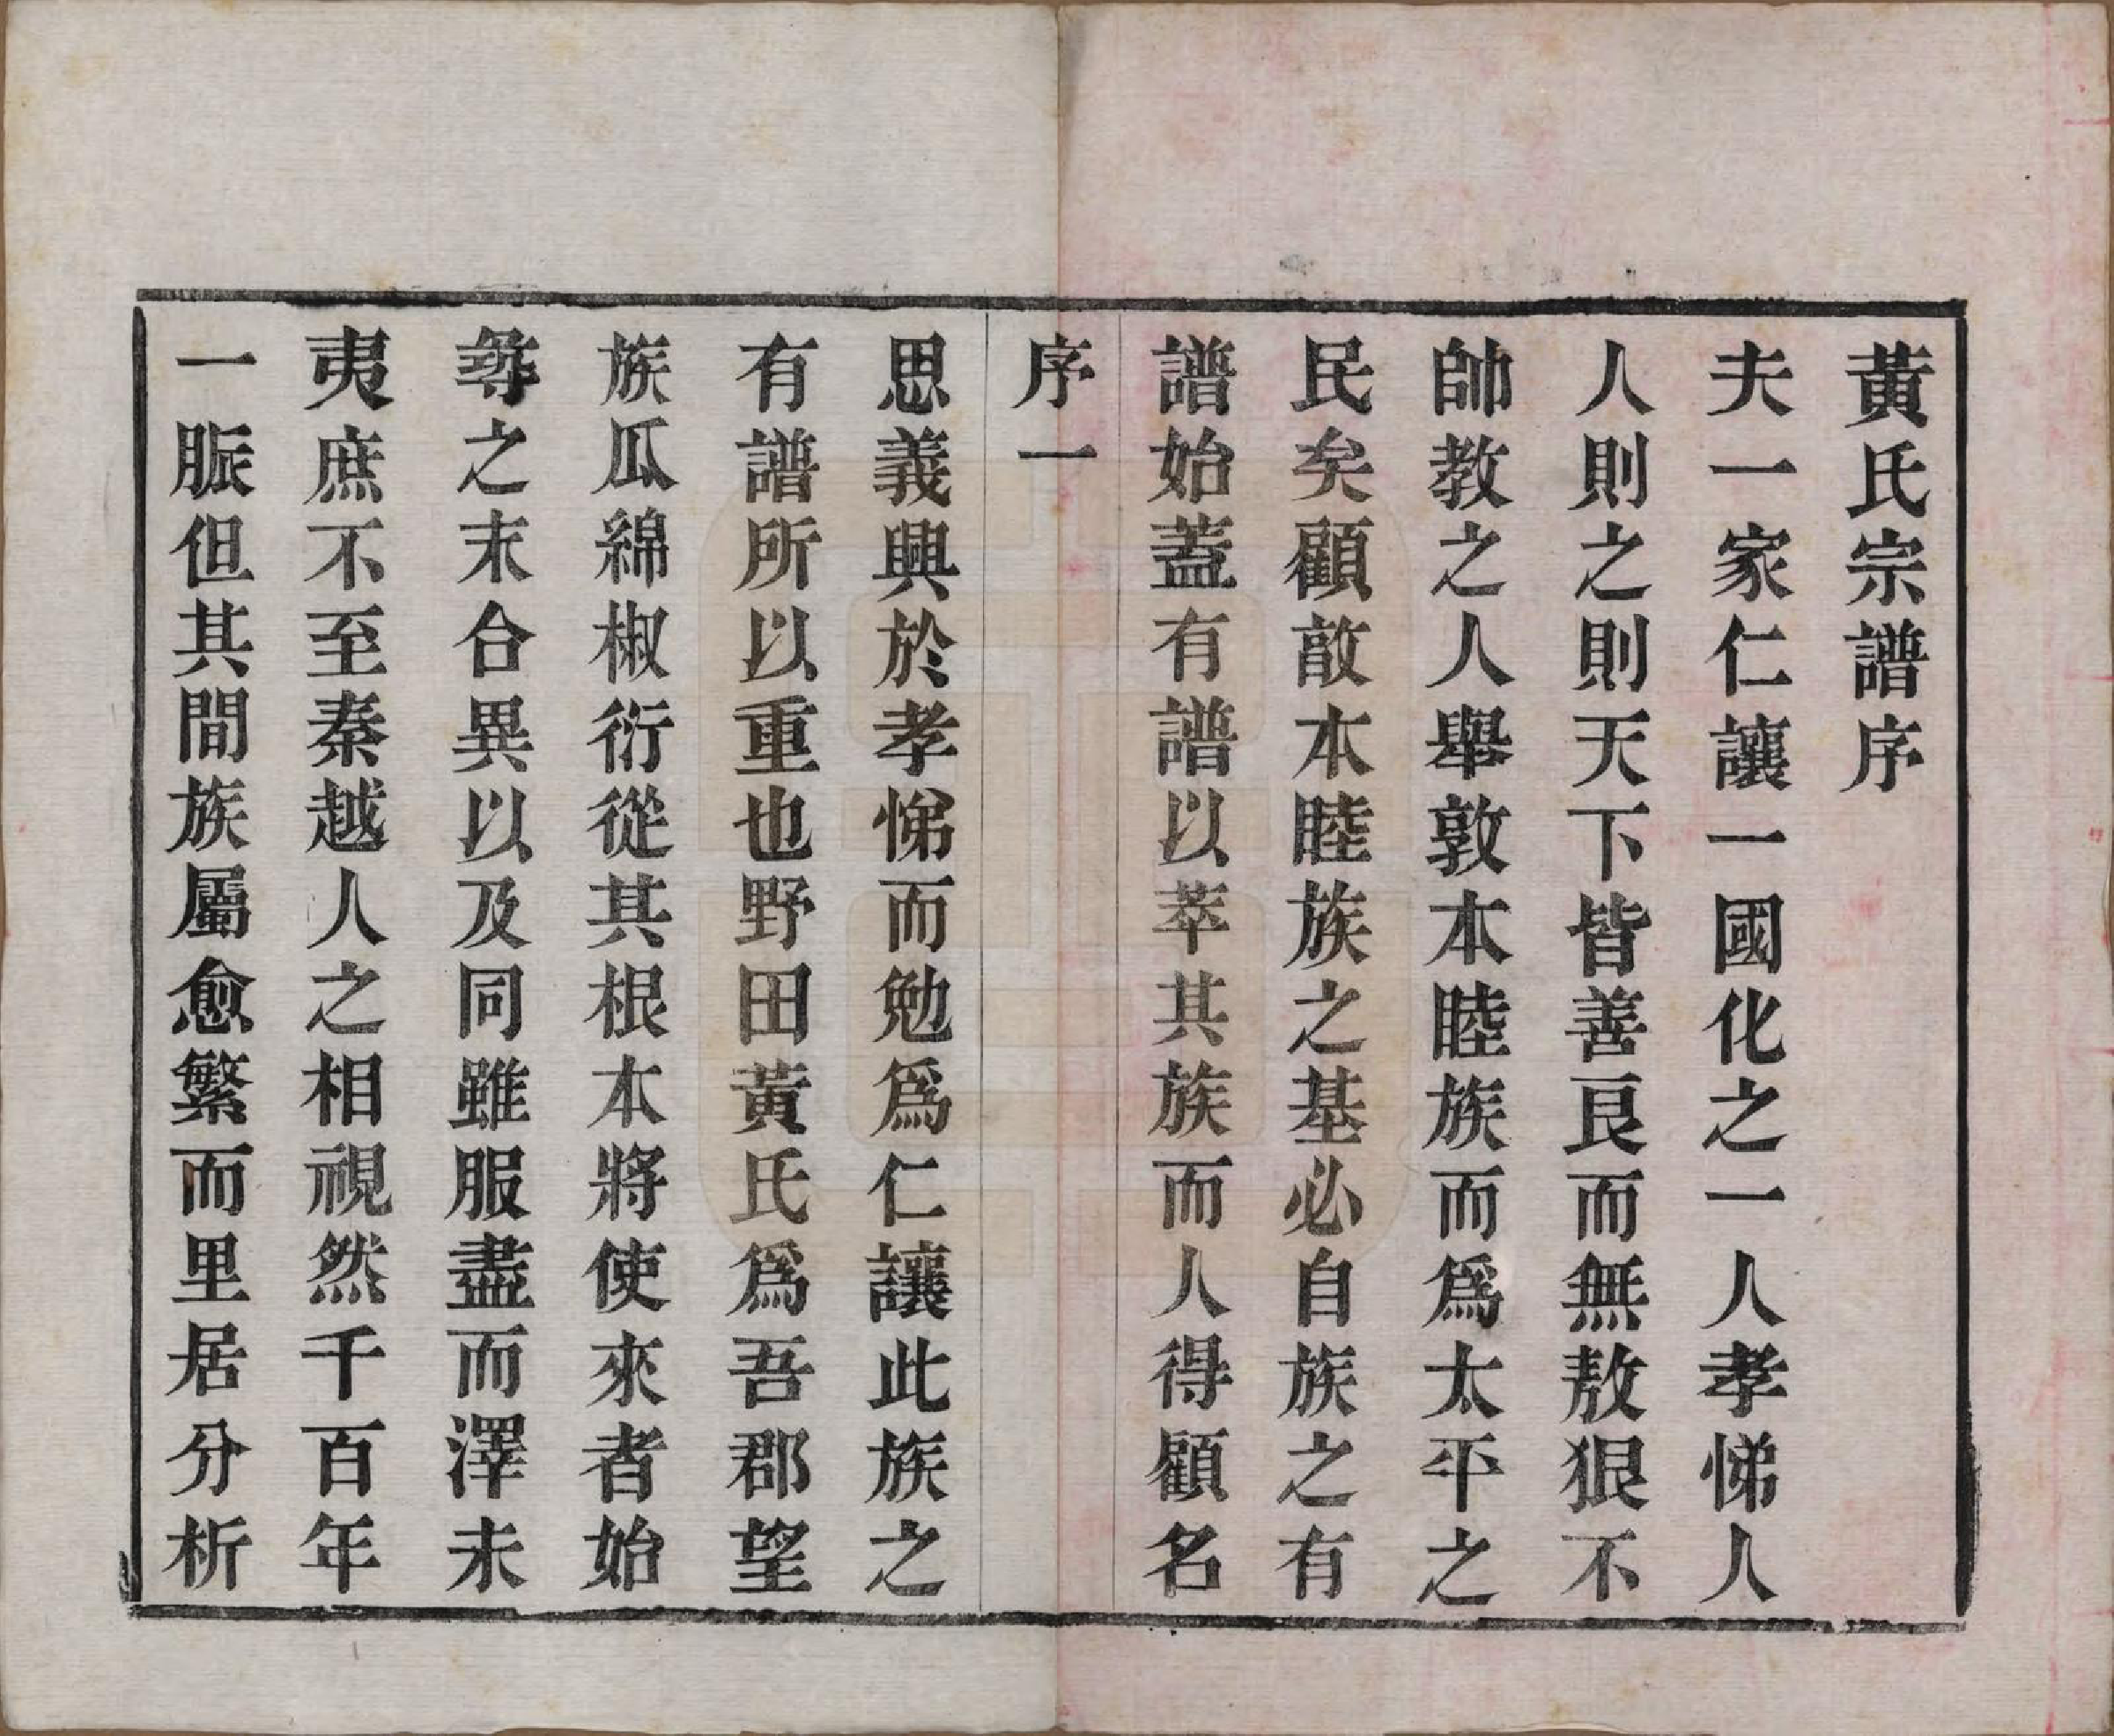 黃氏宗譜序
夫一家仁讓一國化之一人孝悌人
人則之則天下皆善良而無敖狠不
帥教之人舉敦本睦族而爲太平之
民矣顧敦本睦族之基必自族之有
譜始蓋有譜以萃其族而人得顧名
序一
思義興於孝悌而勉爲仁讓此族之
有譜所以重也野田黃氏爲吾郡望
族瓜綿椒衍從其根本將使來者始
彛之末合異以及同雖服盡而澤未
夷庶不至秦越人之相視然千百年
一脈但其間族屬愈繁而里居分析